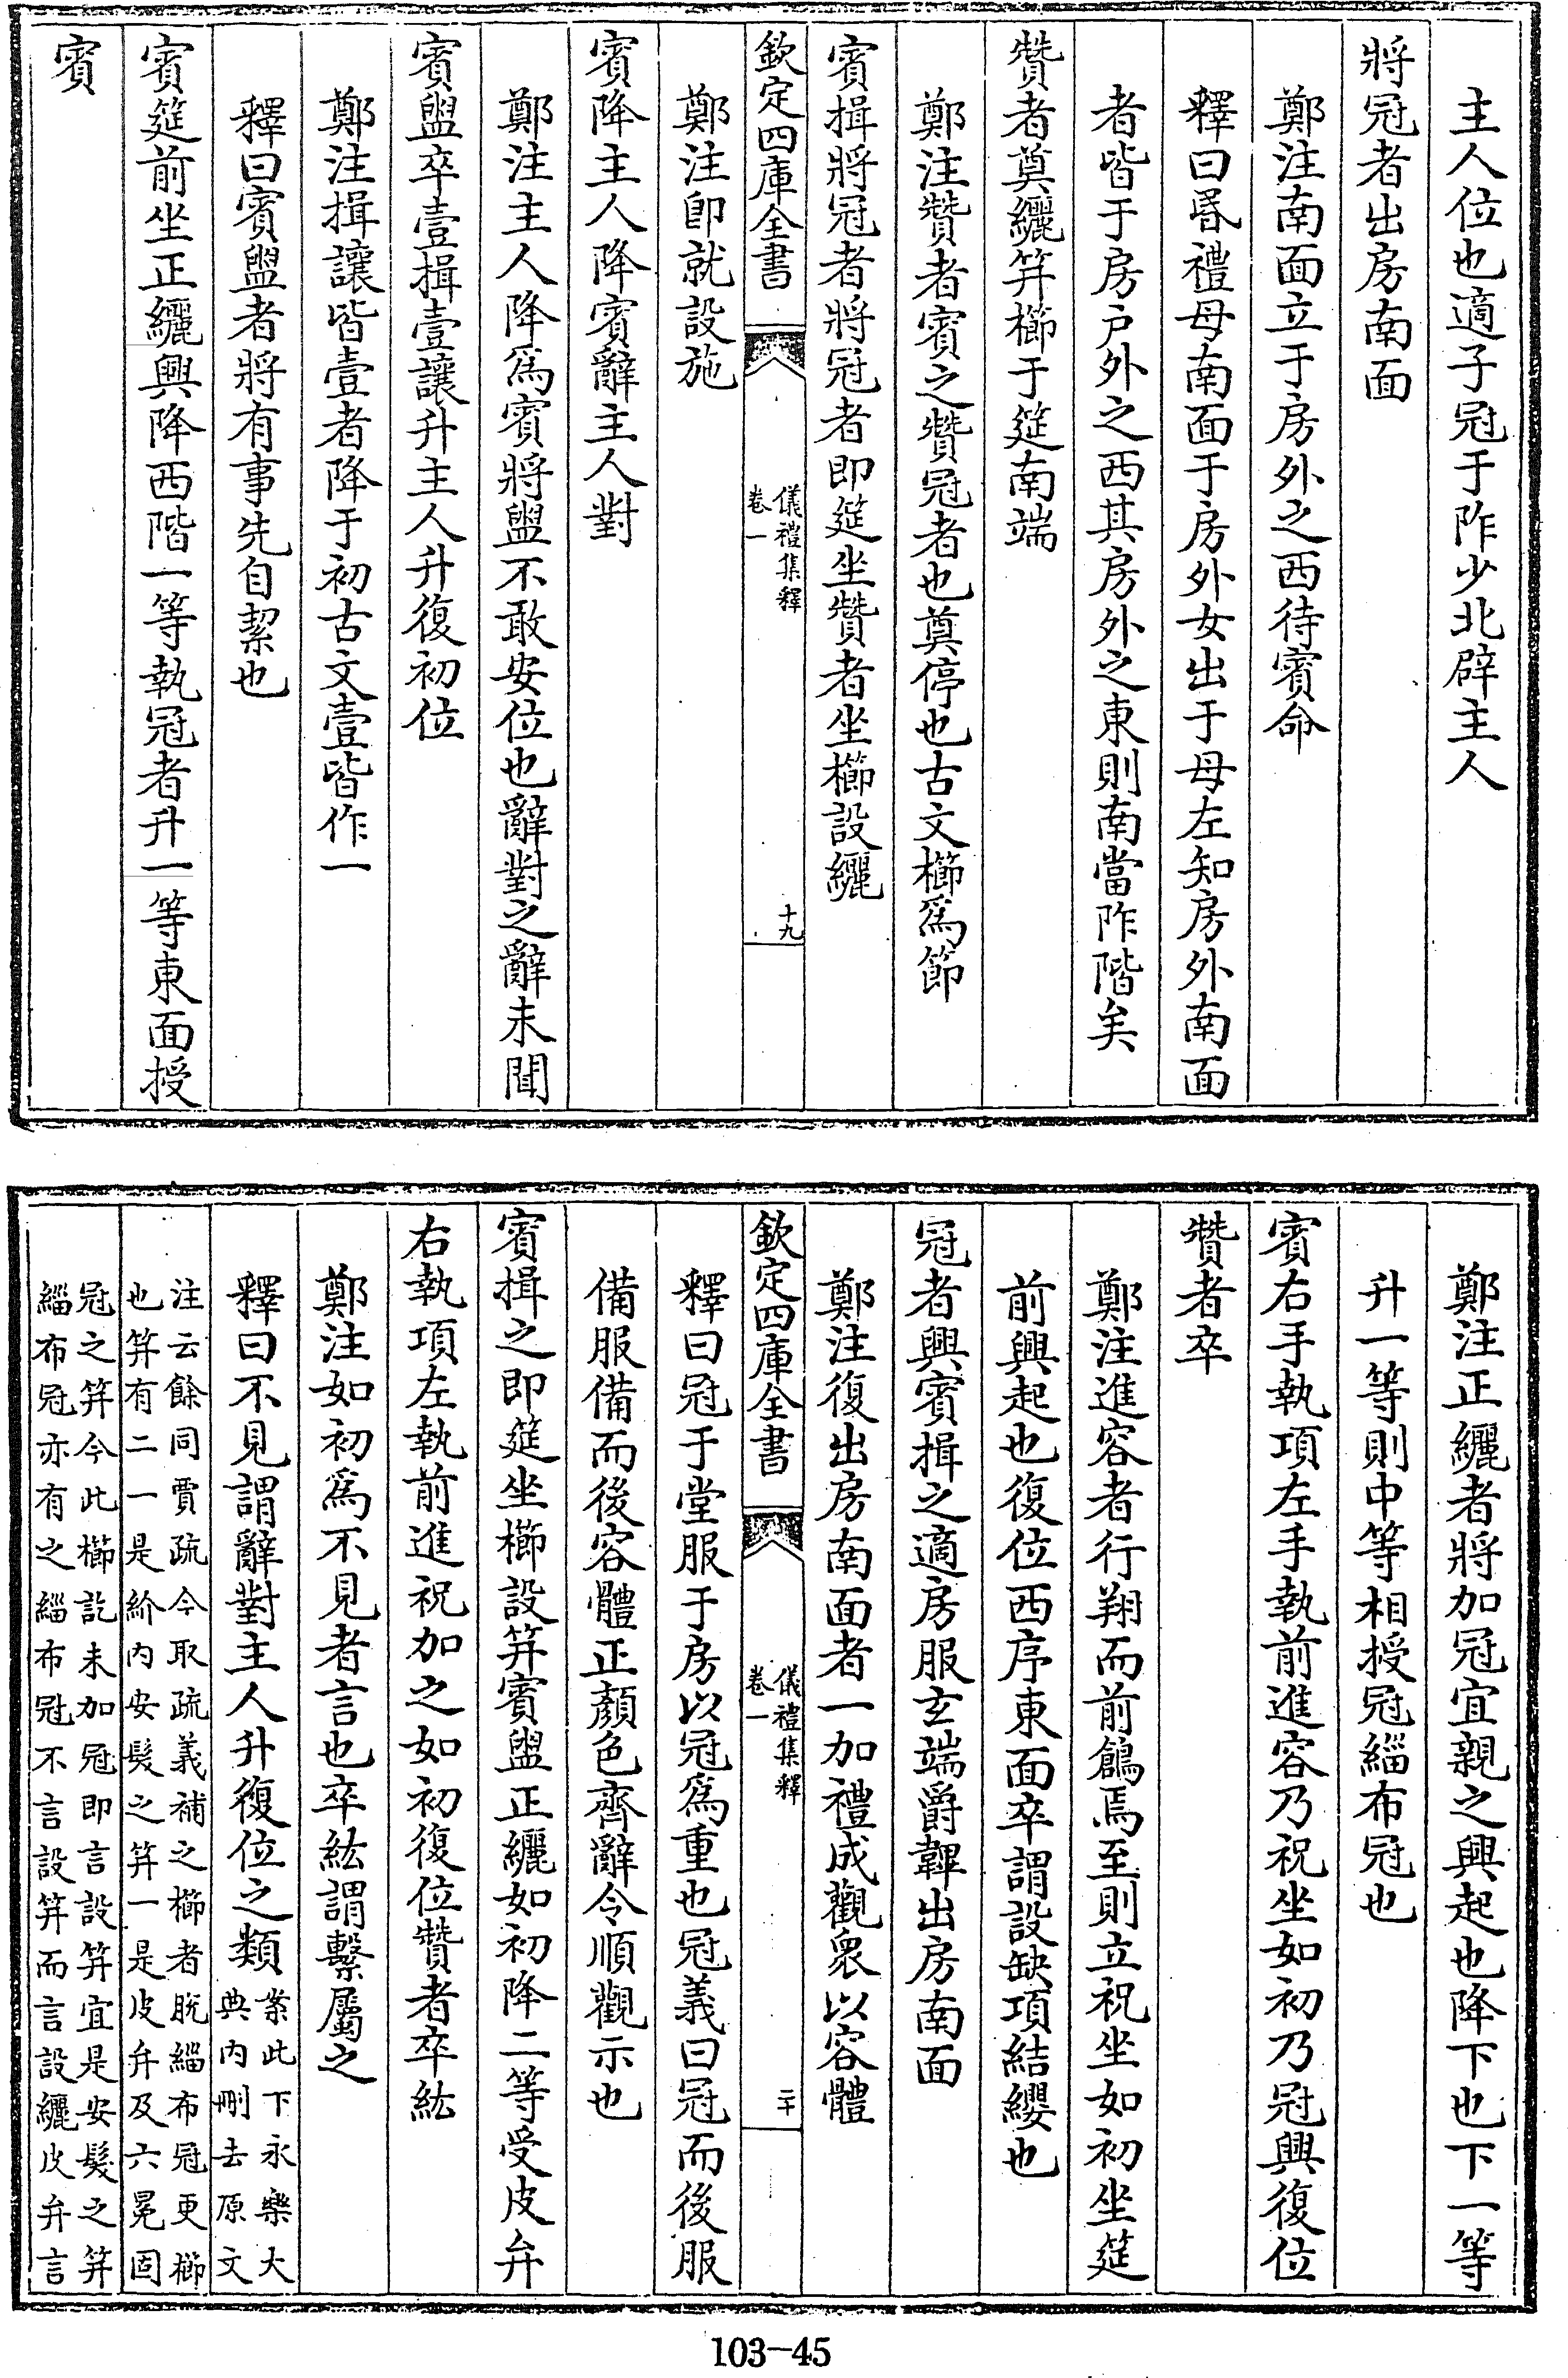 主人位也適子冠于阼少北辟主人
將冠者出房南面
鄭注南面立于房外之西待賓命
釋曰昬禮母南面于房外女出于母左知房外南面
者皆于房戶外之西其房外之東則南當阼階矣
贊者奠纚笄櫛于筵南端
鄭注贊者賓之贊冠者也奠停也古文櫛爲節
賓揖將冠者將冠者即筵坐贊者坐櫛設纚
欽定四庫全書
儀禮集釋
卷一
十九
鄭注即就設施
賓降主人降賓辭主人對
鄭注主人降爲賓將盥不敢安位也辭對之辭未聞
賓盥卒壹揖壹讓升主人升復初位
鄭注揖讓皆壹者降于初古文壹皆作一
釋曰賓盥者將有事先自潔也
賓筵前坐正纚興降西階一等執冠者升一等東面授
賓
鄭注正纚者將加冠宜親之興起也降下也下一等
升一等則中等相授冠緇布冠也
賓右手執項左手執前進容乃祝坐如初乃冠興復位
贊者卒
鄭注進容者行翔而前鶬焉至則立祝坐如初坐筵
前興起也復位西序東面卒謂設缺項結纓也
冠者興賓揖之適房服玄端爵韠出房南面
鄭注復出房南面者一加禮成觀衆以容體
欽定四庫全書
儀禮集釋
卷一
二十
釋曰冠于堂服于房以冠爲重也冠義曰冠而後服
備服備而後容體正顏色齊辭令順觀示也
賓揖之即筵坐櫛設笄賓盥正纚如初降二等受皮弁
右執項左執前進祝加之如初復位贊者卒紘
鄭注如初爲不見者言也卒紘謂繫屬之
釋曰不見謂辭對主人升復位之類案此下永樂大
典內刪去原文
注云餘同賈疏今取疏義補之櫛者脫緇布冠更櫛
也笄有二一是紒內安髮之笄一是皮弁及六冕固
冠之笄今此櫛訖未加冠即言設笄宜是安髮之笄
緇布冠亦有之緇布冠不言設笄而言設纚皮弁言
103-45